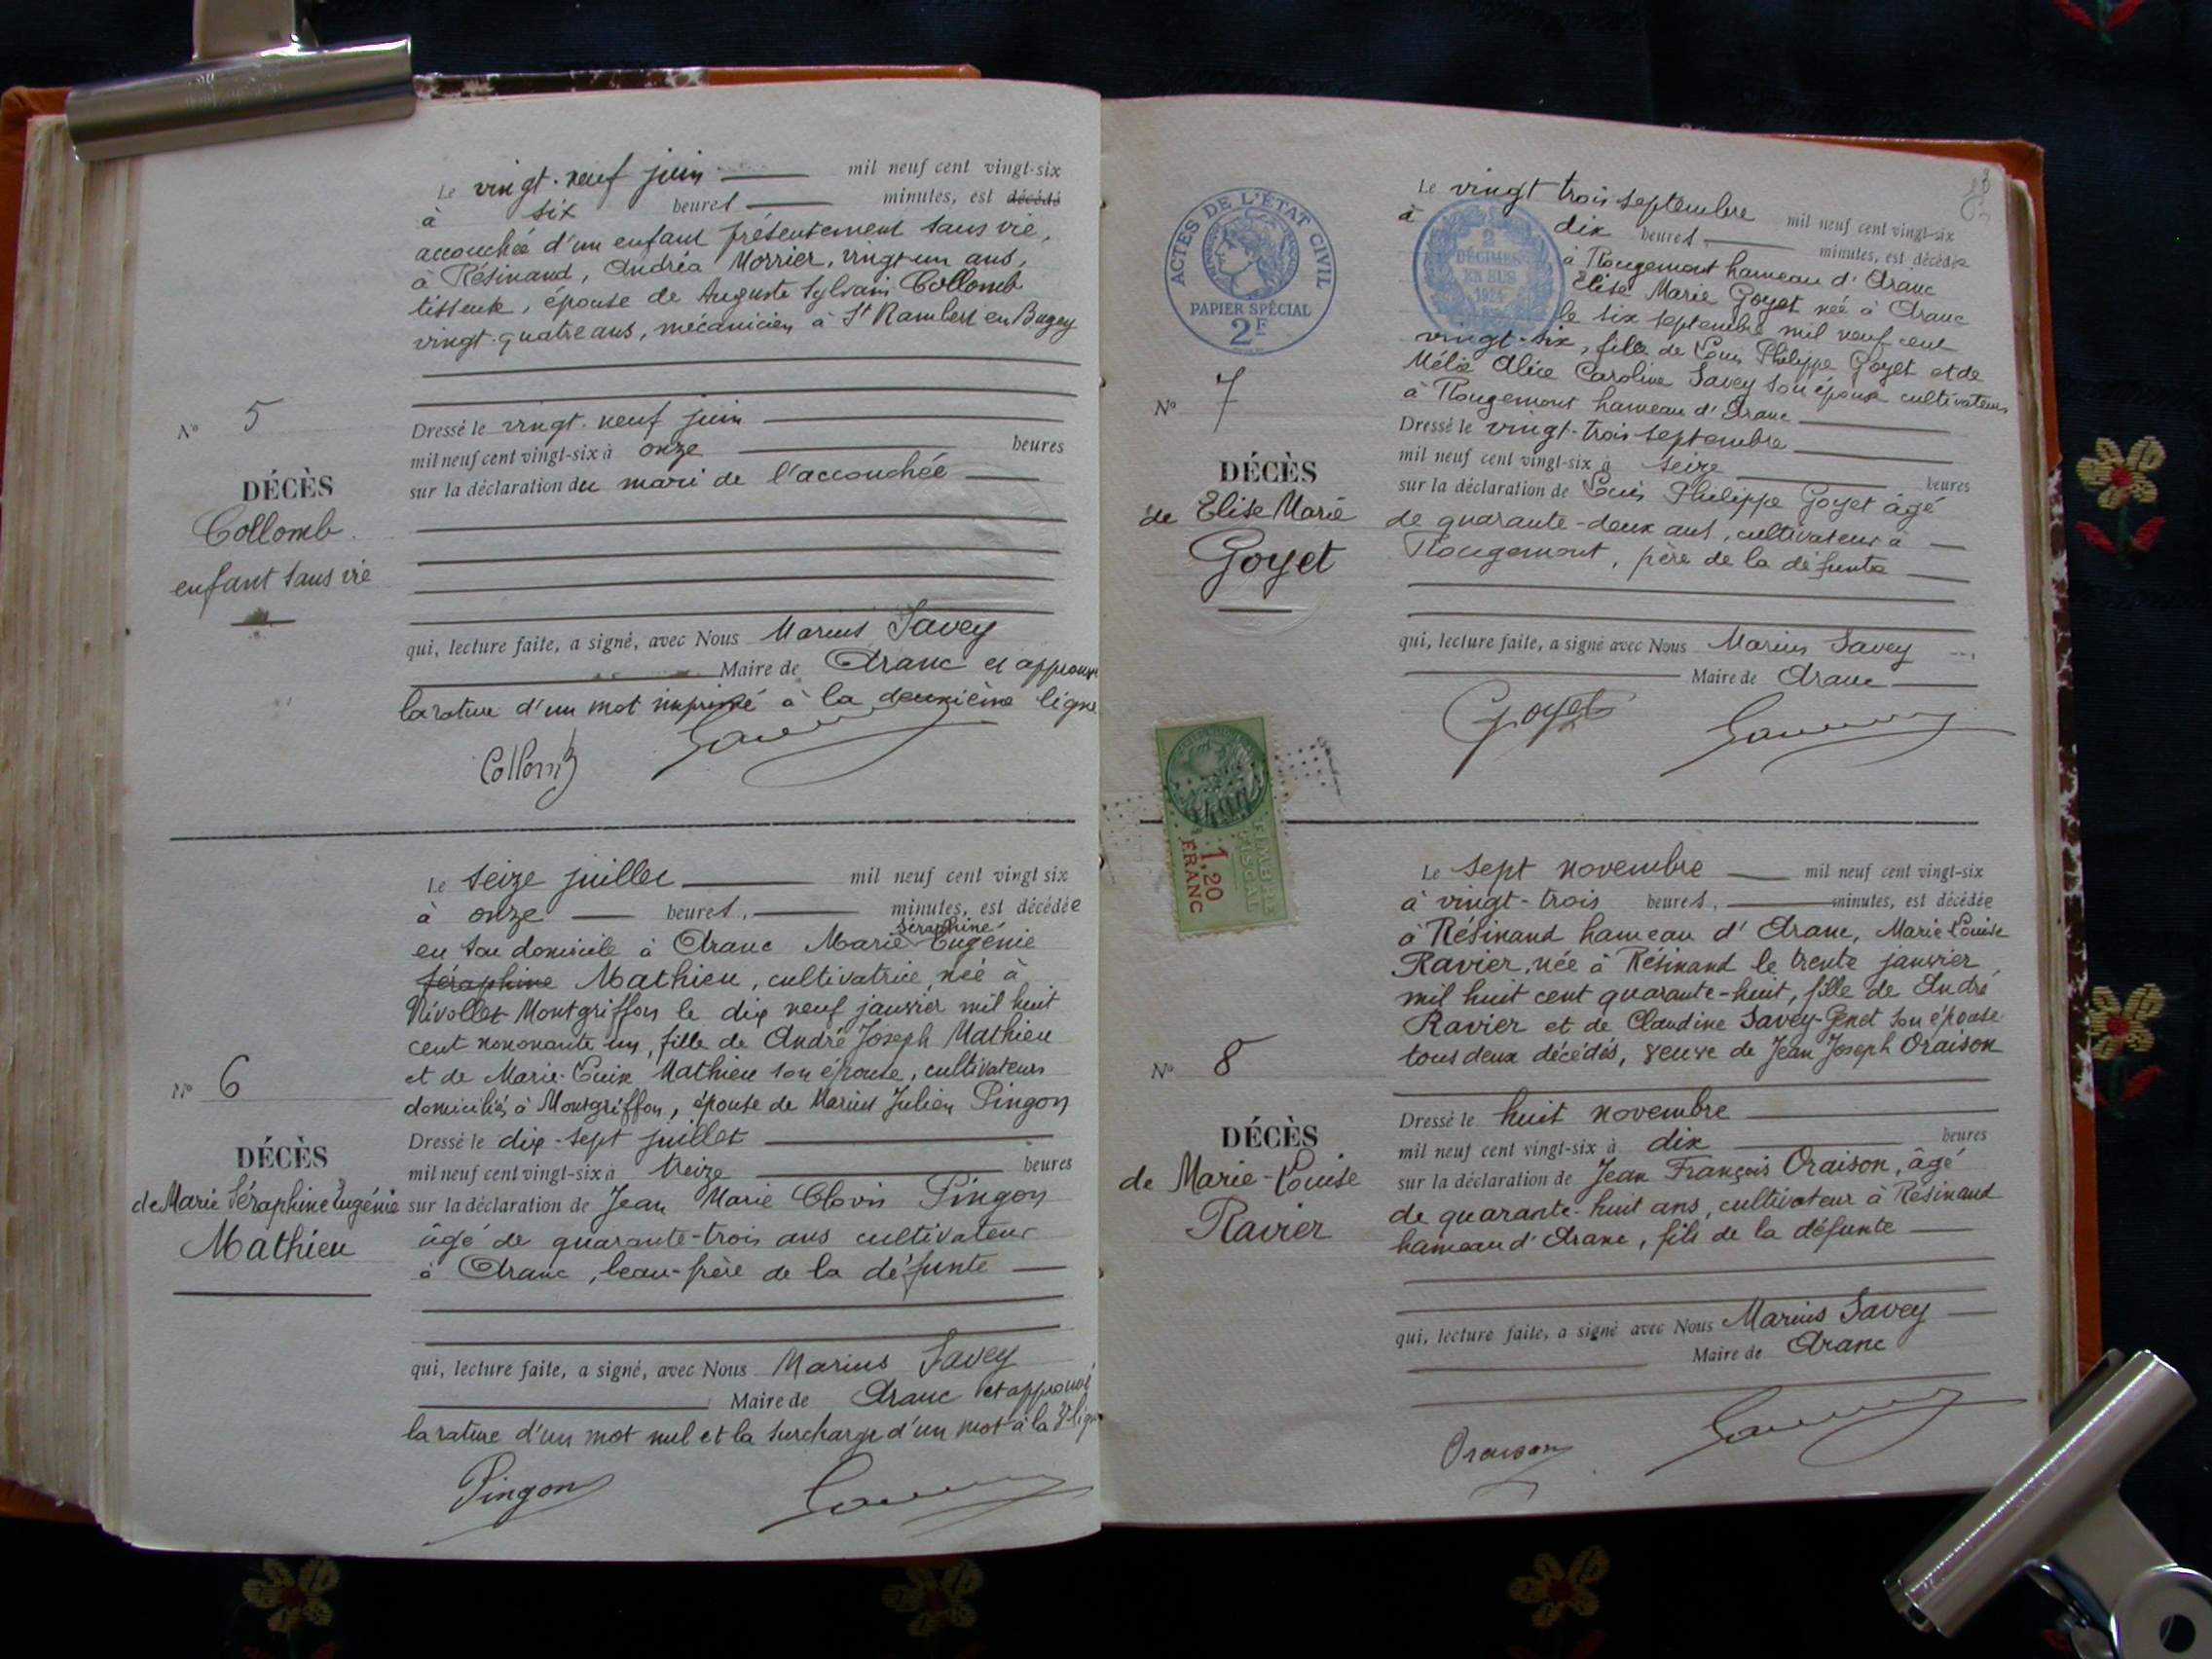 Le vingt-neuf juin mil neuf cent vingt-six
à six heures minutes, est décédé
accouchée d'un enfant présentement sans vie,
à Résinand, Andréa Morrier, vingt un ans,
tisseuse, épouse de Auguste Sylvain Collomb
vingt-quatre ans, mécanicien à St Rambert en Bugey
N° 5
DÉCÈS
Collomb
enfant sans vie
Dressé le vingt-neuf juin
mil neuf cent vingt-six à onze heures
sur la déclaration du mari de l'accouchée
qui, lecture faite, a signé, avec Nous Marius Savey
Maire de Aranc et approuvé
la rature d'un mot imprimé à la deuxième ligne
Collomb
Le seize juillet mil neuf cent vingt six
à onze heures, minutes, est décédée
en son domicile à Aranc Marie Séraphine Eugénie
Séraphine Mathieu, cultivatrice, née à
Nivollet Montgriffon le dix neuf janvier mil huit
cent nonante un, fille de André Joseph Mathieu
et de Marie Mathieu son épouse, cultivateurs
domiciliés à Montgriffon, épouse de Marius Julien Pingon
N° 6
DÉCÈS
de Marie Séraphine Eugénie
Mathieu
Dressé le dix-sept juillet
mil neuf cent vingt-six à treize heures
sur la déclaration de Jean Marie Clovis Pingon
âgé de quarante-trois ans cultivateur
à Aranc, beau-frère de la défunte
qui, lecture faite, a signé, avec Nous Marius Savey
Maire de Aranc et approuvé
la rature d'un mot nul et la surcharge d'un mot à la 3e ligne
Pingon
ACTES DE L'ÉTAT CIVIL
PAPIER SPÉCIAL
2F
2
DÉCIMES
EN SUS
Le vingt trois septembre mil neuf cent vingt-six
à dix heures minutes, est décédée
à Rougemont hameau d'Aranc
Elise Marie Goyet née à Aranc
le six septembre mil neuf cent
vingt-six, fille de Louis Philippe Goyet et de
Mélie Alice Caroline Savey son épouse cultivateurs
à Rougemont hameau d'Aranc
N° 7
DÉCÈS
de Elise Marie
Goyet
Dressé le vingt-trois septembre
mil neuf cent vingt-six à seize heures
sur la déclaration de Louis Philippe Goyet âgé
de quarante-deux ans, cultivateur à
Rougemont, père de la défunte
qui, lecture faite, a signé avec Nous Marius Savey
Maire de Aranc
Goyet
TIMBRE
FISCAL
1,20
FRANC
Le sept novembre mil neuf cent vingt-six
à vingt-trois heures, minutes, est décédée
à Résinand hameau d'Aranc, Marie Louise
Ravier, née à Résinand le trente janvier
mil huit cent quarante-huit, fille de André
Ravier et de Claudine Savey-Genet son épouse
tous deux décédés, veuve de Jean Joseph Oraison
N° 8
DÉCÈS
de Marie-Louise
Ravier
Dressé le huit novembre
mil neuf cent vingt-six à dix heures
sur la déclaration de Jean François Oraison, âgé
de quarante-huit ans, cultivateur à Résinand
hameau d'Aranc, fils de la défunte
qui, lecture faite, a signé avec Nous Marius Savey
Maire de Aranc
Oraison